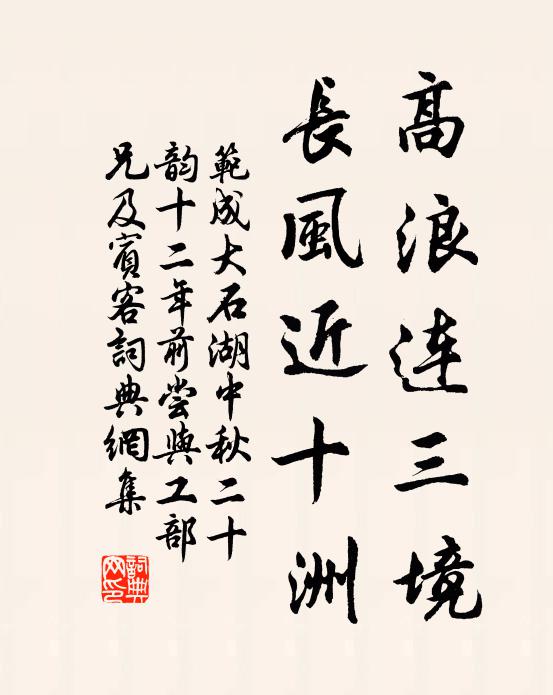 高浪连三境
長風近十洲
範成大石湖中秋二十
韵十二年前嘗與工部
兄及賓客詞典網集
詞典網印